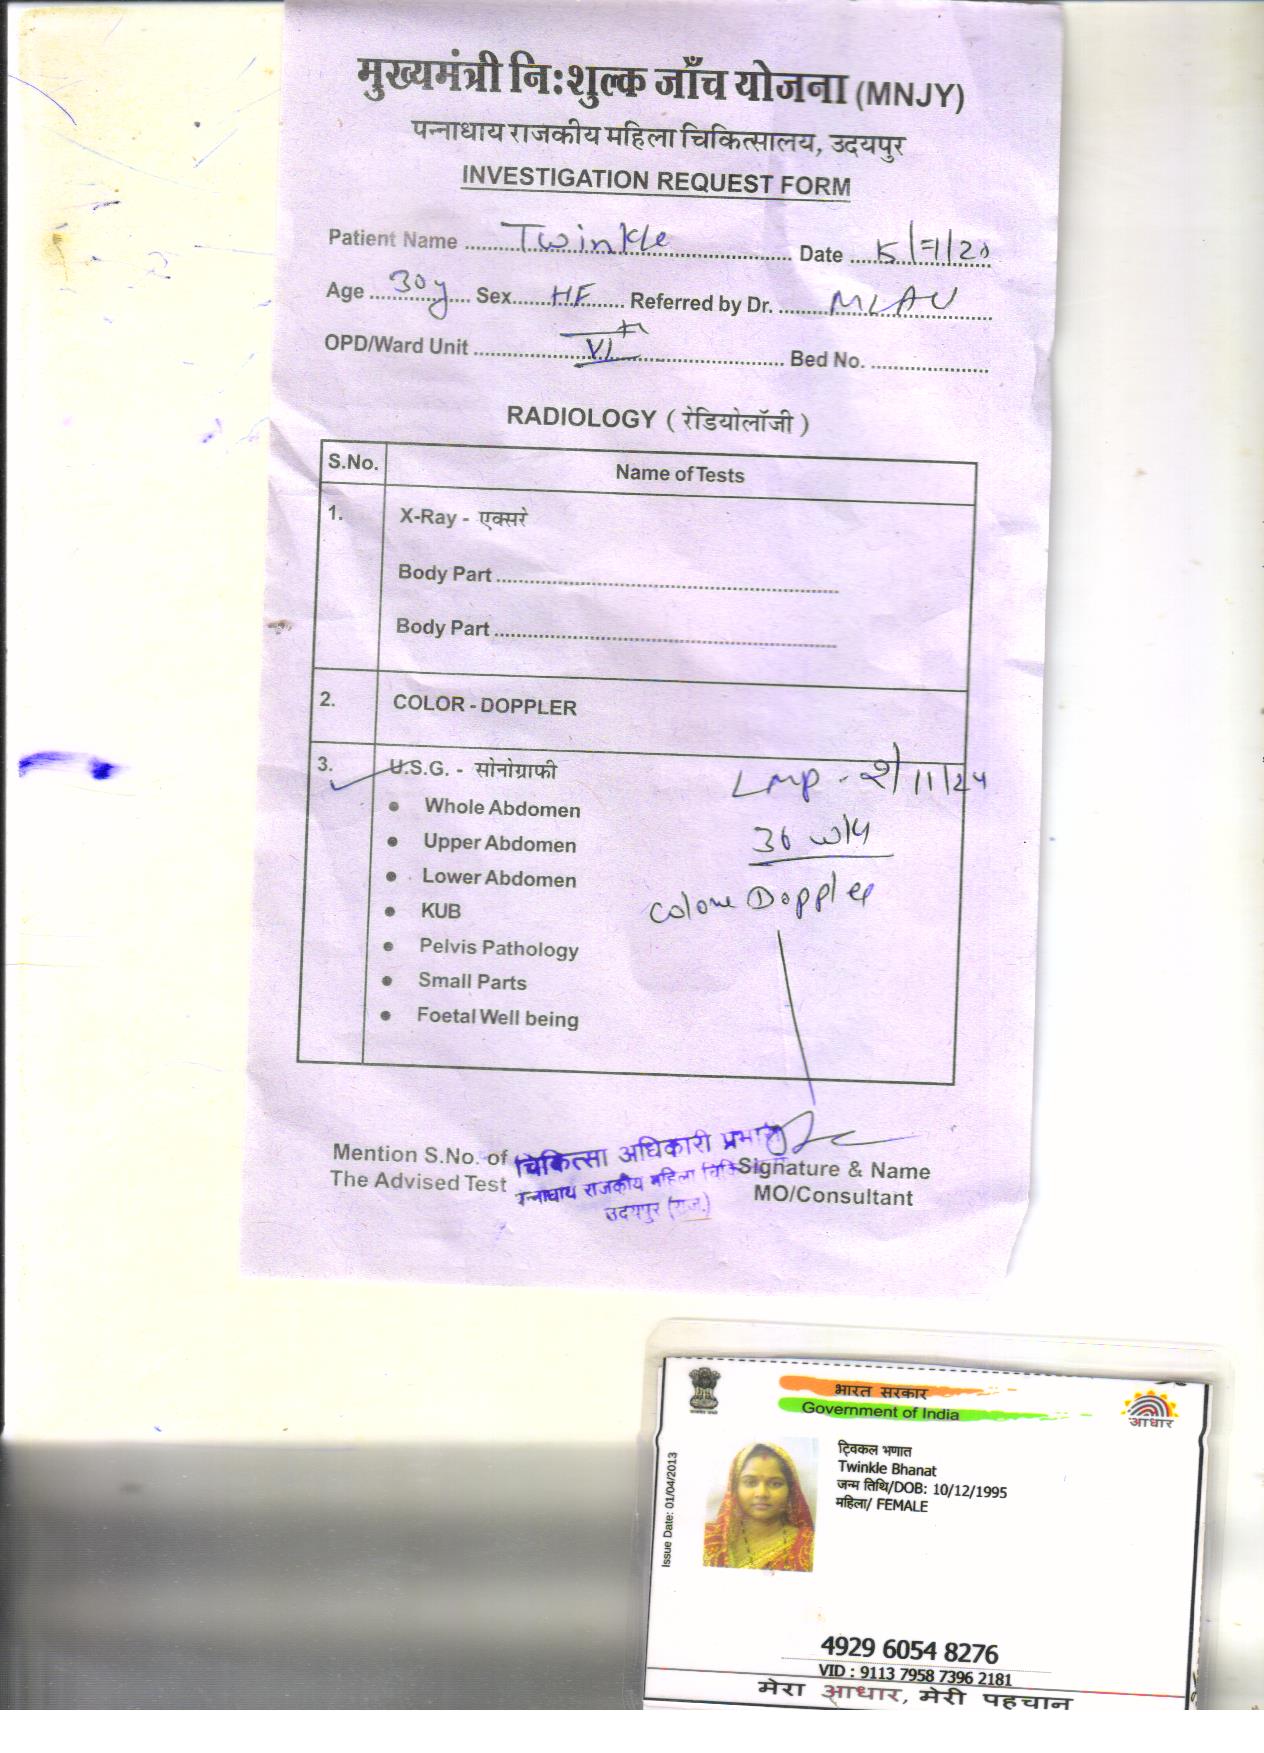 मुख्यमंत्री नि:शुल्क जाँच योजना (MNJY)
पन्नाधाय राजकीय महिला चिकित्सालय, उदयपुर
INVESTIGATION REQUEST FORM
Patient Name Twinkle Date
Age 30y Sex HF Referred by Dr.
OPD/Ward Unit VI Bed No.
RADIOLOGY ( रेडियोलॉजी )
S.No. Name of Tests
1. X-Ray - एक्सरे
Body Part
Body Part
2. COLOR - DOPPLER
3. U.S.G. - सोनोग्राफी
Lmp - 2/11/24
• Whole Abdomen
36 w
• Upper Abdomen
• Lower Abdomen
Colour Doppler
• KUB
• Pelvis Pathology
• Small Parts
• Foetal Well being
Mention S.No. of
The Advised Test
चिकित्सा अधिकारी प्रभारी
पन्नाधाय राजकीय महिला
उदयपुर (राज.)
Signature & Name
MO/Consultant
भारत सरकार
Government of India
आधार
Issue Date: 01/04/2013
ट्विंकल भणात
Twinkle Bhanat
जन्म तिथि/DOB: 10/12/1995
महिला/ FEMALE
4929 6054 8276
VID : 9113 7958 7396 2181
मेरा आधार, मेरी पहचान